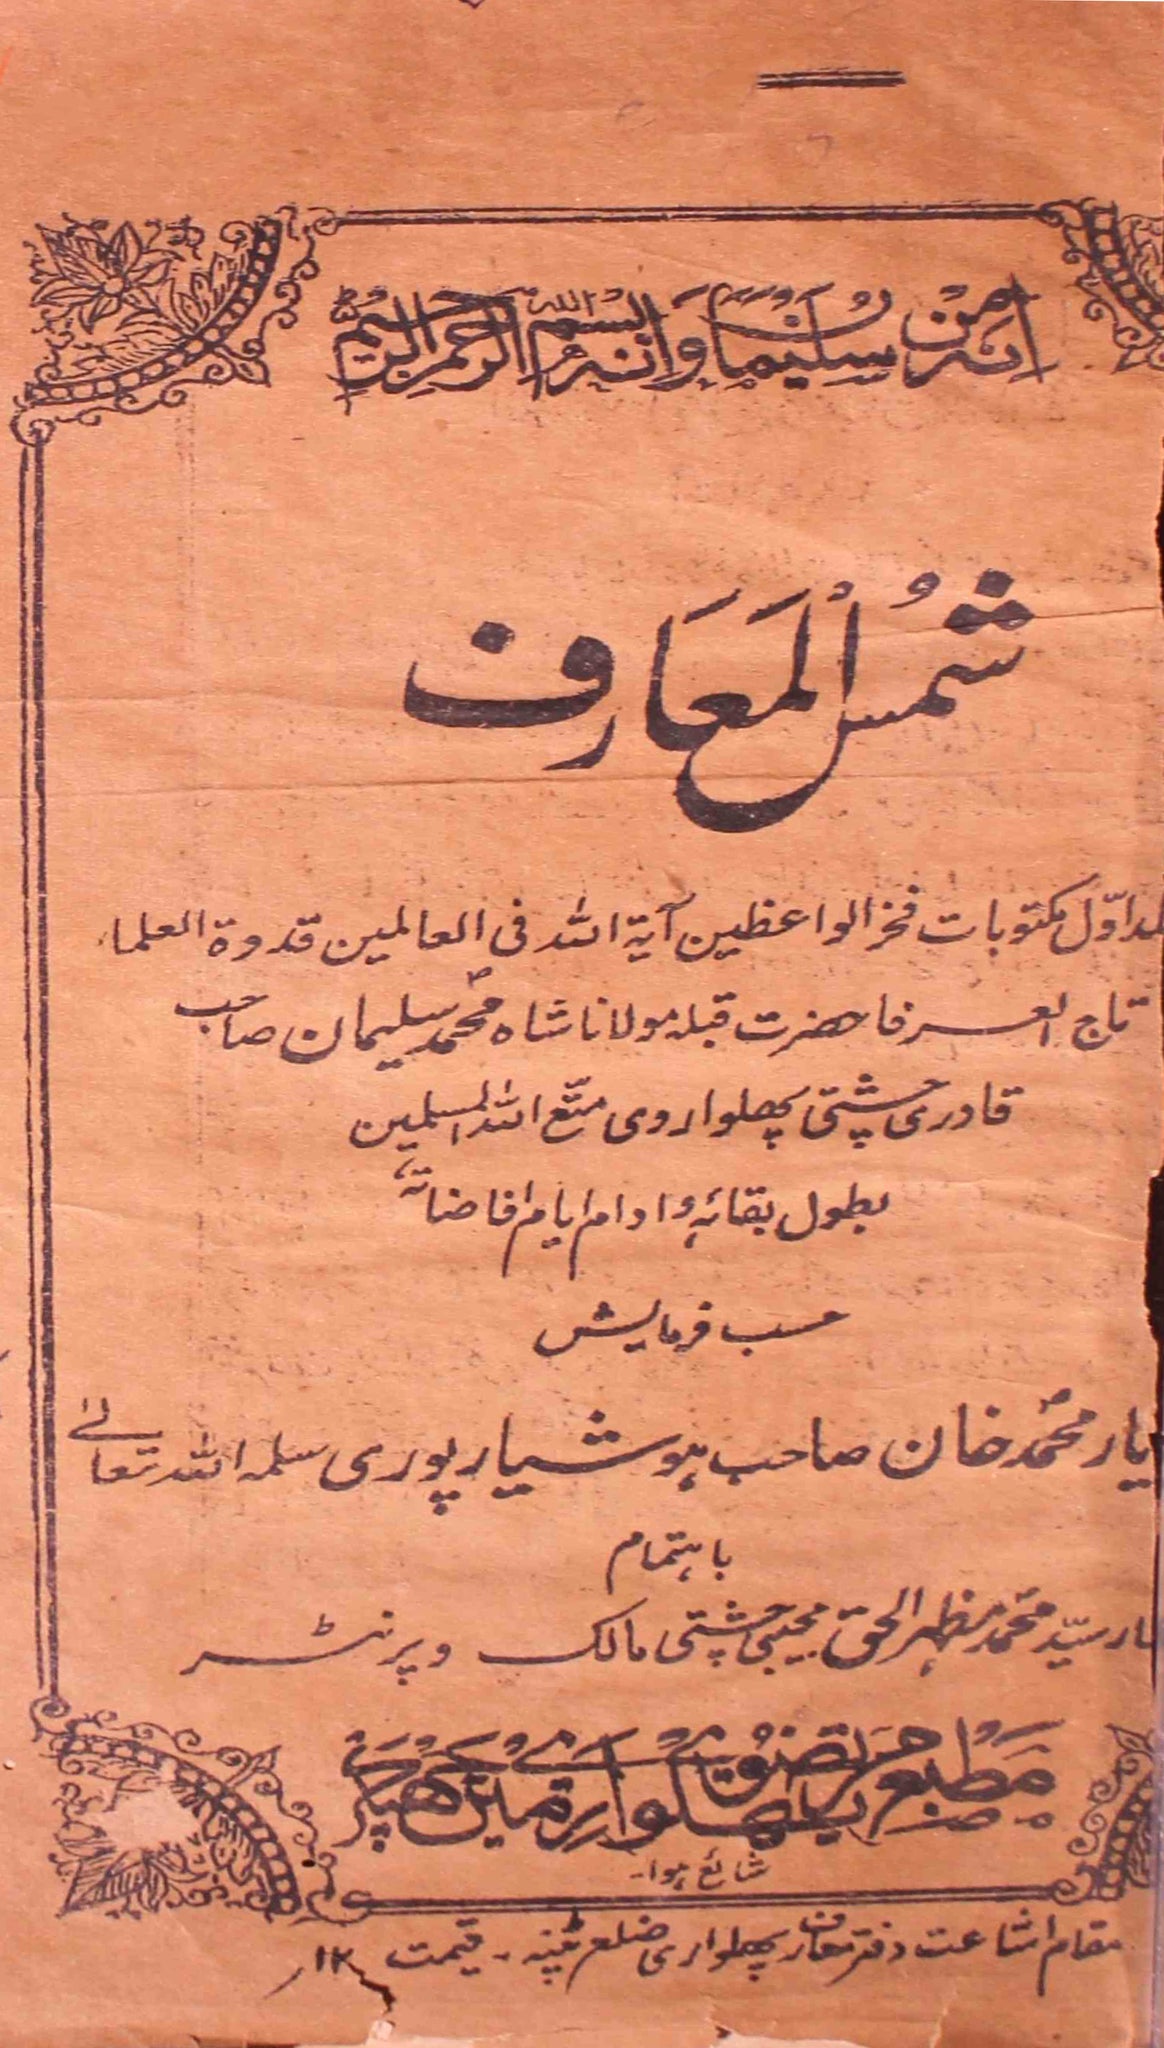 اِنَّهٗ مِنْ سُلَيْمَانَ وَاِنَّهٗ بِسْمِ اللّٰهِ الرَّحْمٰنِ الرَّحِيْمِ
شمسُ المَعَارف
جلد اوّل مکتوبات فخر الواعظین آیۃ اللہ فی العالمین قدوۃ العلماء
تاج العرفا حضرت قبلہ مولانا شاہ محمد سلیمان صاحب
قادری چشتی پھلواروی متّع اللہ المسلمین
بطول بقائہٖ وادام ایام افاضاتہٖ
حسب فرمایش
یار محمد خان صاحب ہوشیارپوری سلمہ اللہ تعالےٰ
باہتمام
سیّد محمد مظہر الحق مجیبی چشتی مالک و پرنٹر
مطبع مرتضویہ پھلواری میں چھپکر
شائع ہوا۔
مقام اشاعت دفتر معارف پھلواری ضلع پٹنہ۔ قیمت ۱۲؍